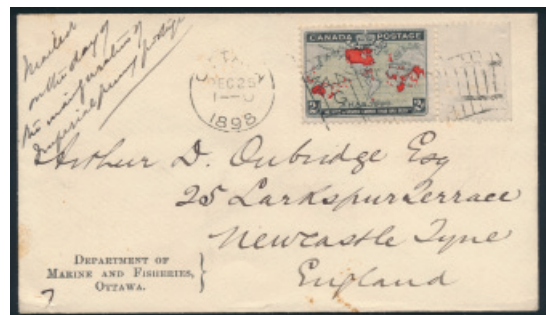 Mailed
on the day of
the inauguration of
Imperial penny postage
OTTAWA
DEC 25
1898
CANADA POSTAGE
XMAS 1898
2c 2c
Arthur D. Oubridge Esq
25 Larkspur Terrace
Newcastle Tyne
England
DEPARTMENT OF
MARINE AND FISHERIES,
OTTAWA.